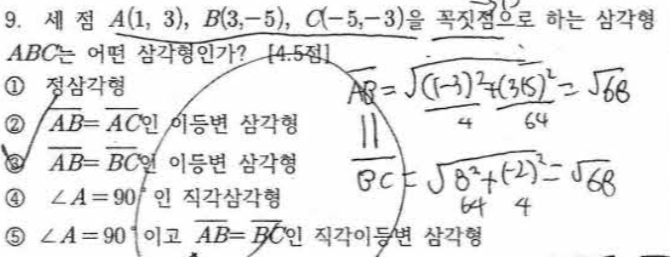 9. 세 점 A(1, 3), B(3,-5), C(-5,-3)을 꼭짓점으로 하는 삼각형
ABC는 어떤 삼각형인가? [4.5점]
① 정삼각형
② AB=AC인 이등변 삼각형
③ AB=BC인 이등변 삼각형
④ ∠A=90°인 직각삼각형
⑤ ∠A=90°이고 AB=BC인 직각이등변 삼각형
AB=√(1-3)²+(3+5)²=√68
4 64
||
BC=√8²+(-2)²=√68
64 4